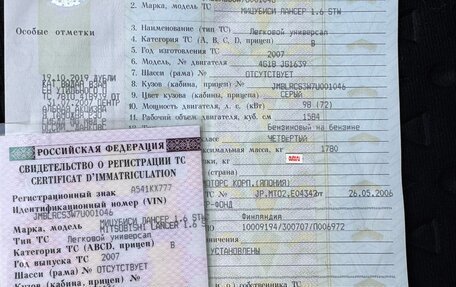 2. Марка, модель ТС МИЦУБИСИ ЛАНСЕР 1.6 STW
3. Наименование (тип ТС) Легковой универсал
4. Категория ТС (А, В, С, D, прицеп) В
5. Год изготовления ТС 2007
6. Модель, № двигателя 4G18
7. Шасси (рама) № ОТСУТСТВУЕТ
8. Кузов (кабина, прицеп) № JMBLRCS3W7U001046
9. Цвет кузова (кабины, прицепа) СЕРЫЙ
10. Мощность двигателя, л. с. (кВт) 98 (72)
11. Рабочий объем двигателя, куб. см 1584
Бензиновый на бензине
ЧЕТВЕРТЫЙ
максимальная масса, кг 1780
кг
КОРП.(ЯПОНИЯ)
ТС) № JP.MT02.E04342 от 26.05.2006
Финляндия
10009194/300707/П006972
аничения
УСТАНОВЛЕНЫ
собственника ТС
Особые отметки
19.10.2019
31.07.2007
РОССИЙСКАЯ ФЕДЕРАЦИЯ
СВИДЕТЕЛЬСТВО О РЕГИСТРАЦИИ ТС
CERTIFICAT D'IMMATRICULATION
Регистрационный знак А541КХ777
Идентификационный номер (VIN)
JMBLRCS3W7U001046
Марка, модель МИЦУБИСИ ЛАНСЕР 1.6 STW
MITSUBISHI LANCER 1.6 STW
Тип ТС Легковой универсал
Категория ТС (ABCD, прицеп) В
Год выпуска ТС 2007
Шасси (рама) № ОТСУТСТВУЕТ
Кузов (кабина, прицеп) №